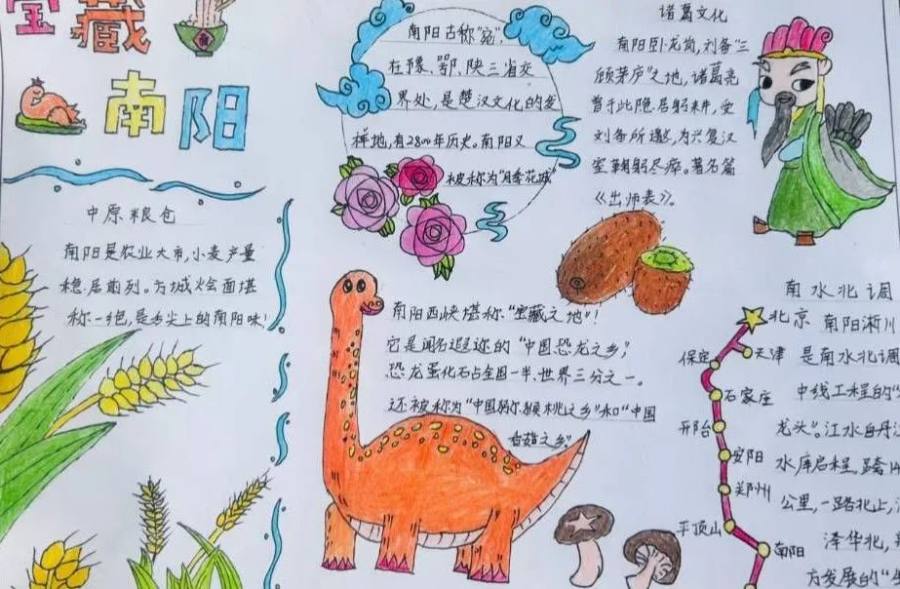 宝藏
南阳
中原粮仓
南阳是农业大市,小麦产量
稳居前列。方城烩面堪
称一绝,是舌尖上的南阳味!
南阳古称"宛",
在豫、鄂、陕三省交
界处,是楚汉文化的发
祥地,有2800年历史。南阳又
被称为"月季花城"
诸葛文化
南阳卧龙岗,刘备"三
顾茅庐"之地,诸葛亮
曾于此隐居躬耕,受
刘备所邀,为兴复汉
室鞠躬尽瘁。著名篇
《出师表》。
南阳西峡堪称"宝藏之地"!
它是闻名遐迩的"中国恐龙之乡",
恐龙蛋化石占全国一半、世界三分之一。
还被称为"中国猕猴桃之乡"和"中国
香菇之乡"
南水北调
北京
天津
保定
石家庄
邢台
安阳
郑州
平顶山
南阳
南阳淅川
是南水北调
中线工程的"
龙头"。江水自丹江
水库启程,跨
公里,一路北上,
泽华北,
方发展的"